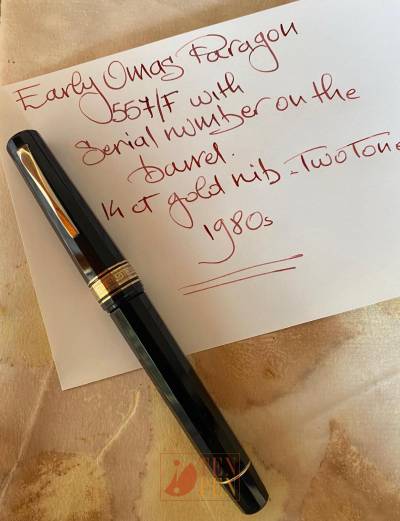 Early Omas Paragon
557/F with
Serial number on the
barrel.
14 ct gold nib - Two Tone
1980s